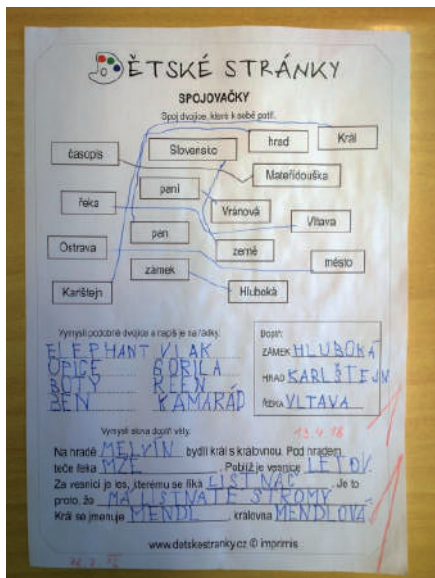 DĚTSKÉ STRÁNKY
SPOJOVAČKY
Spoj dvojice, které k sobě patří.
časopis
Slovensko
hrad
Král
Mateřídouška
paní
řeka
Vránová
Vltava
pan
Ostrava
země
město
zámek
Karlštejn
Hluboká
Vymysli podobné dvojice a napiš je na řádky.
ELEPHANT VLAK
OPICE GORILA
BOTY KEEN
BEN KAMARÁD
Doplň:
ZÁMEK HLUBOKÁ
HRAD KARLŠTEJN
ŘEKA VLTAVA
13.4.18
Vymysli slova doplň věty.
Na hradě MELVÍN bydlí král s královnou. Pod hradem
teče řeka MŽE. Poblíž je vesnice LETOV.
Za vesnicí je les, kterému se říká LISTNÁČ. Je to
proto, že MÁ LISTNATÉ STROMY.
Král se jmenuje MENDL, královna MENDLOVÁ
www.detskestranky.cz © imprimis